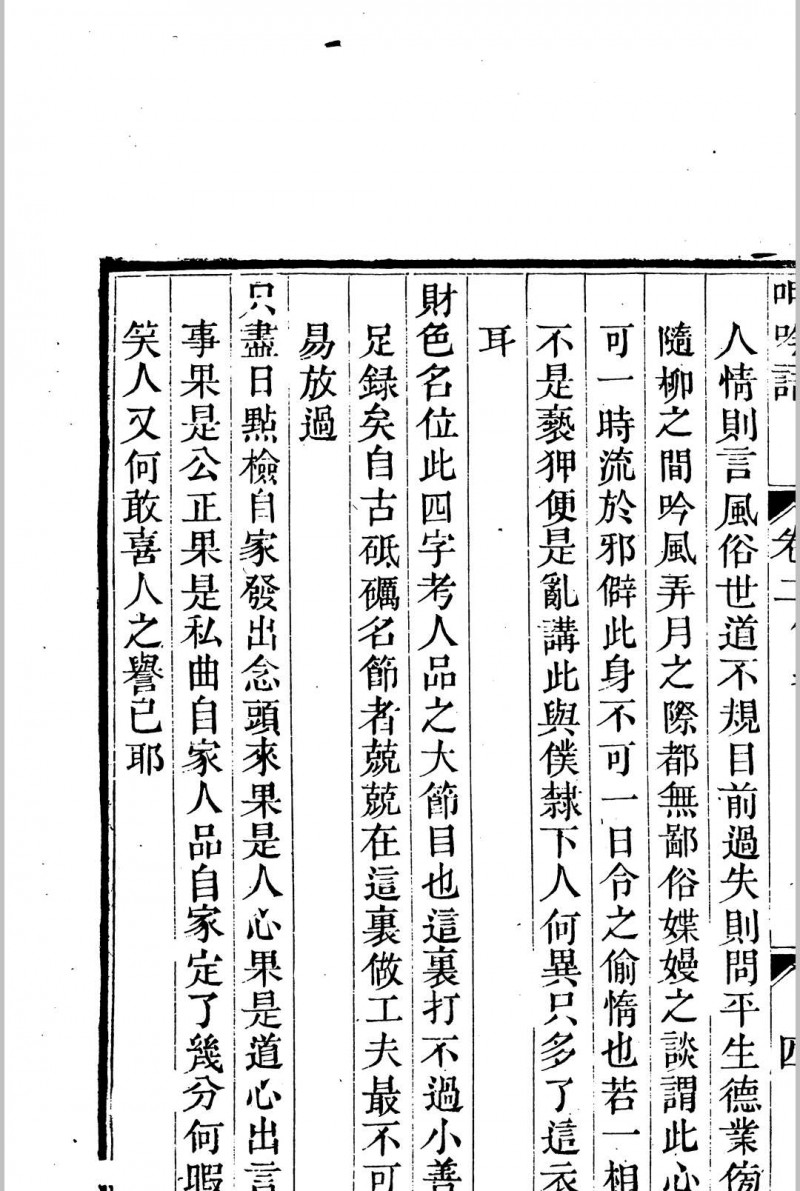 呻吟語 卷二 四
人情則言風俗世道不規目前過失則問平生德業傍
隨柳之間吟風弄月之際都無鄙俗媟嫚之談謂此心
可一時流於邪僻此身不可一日令之偷惰也若一相
不是褻狎便是亂講此與僕隸下人何異只多了這衣
耳
財色名位此四字考人品之大節目也這裏打不過小善
足録矣自古砥礪名節者兢兢在這裏做工夫最不可
易放過
只盡日點檢自家發出念頭來果是人心果是道心出言
事果是公正果是私曲自家人品自家定了幾分何暇
笑人又何敢喜人之譽己耶